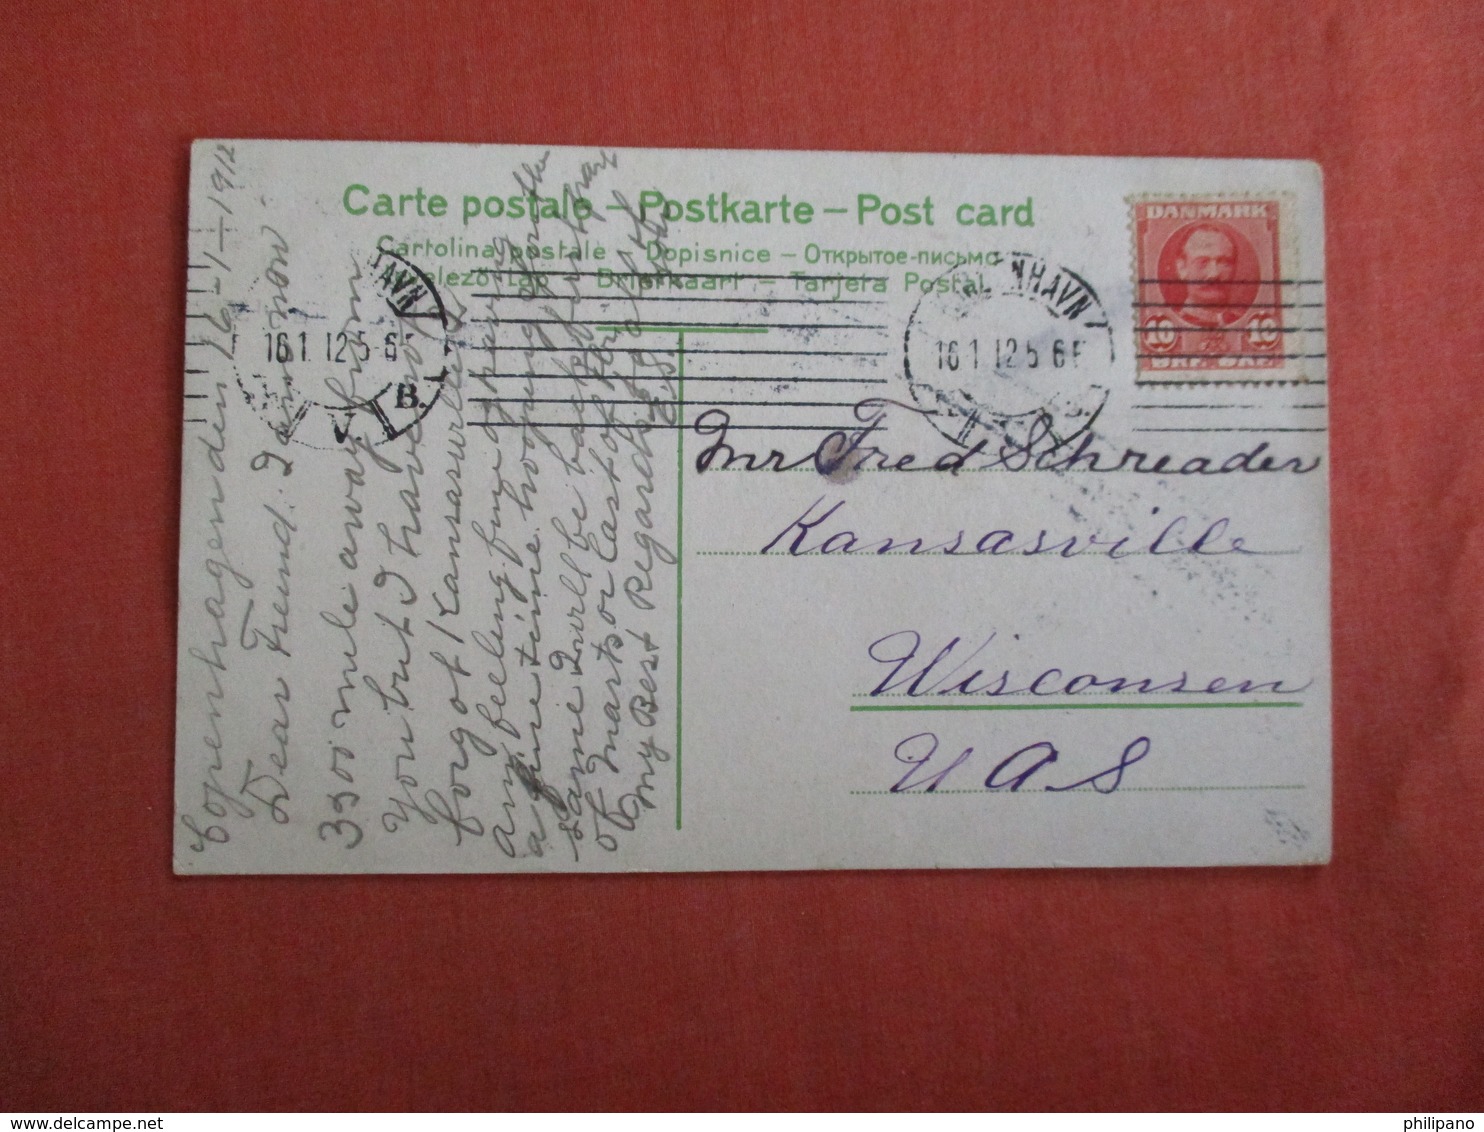 Carte postale – Postkarte – Post card
Cartolina postale – Dopisnice – Открытое-письмо
Levelező-Lap – Briefkaart – Tarjeta Postal
DANMARK
10 10
KJØBENHAVN
16 1 12 5-6E
B.
KJØBENHAVN
16 1 12 5 6E
B.
Copenhagen den 16–1–1912
Dear Freund. I am now
3500 mile away from
You but I have not
forgot Kansasville I
am feeling fine having
a fine time hooping for the
same I will be back first part
of Marts or last of
My Best Regards
Mr Fred Schreader
Kansasville
Wisconsen
U A S
philipano
delcampe.net